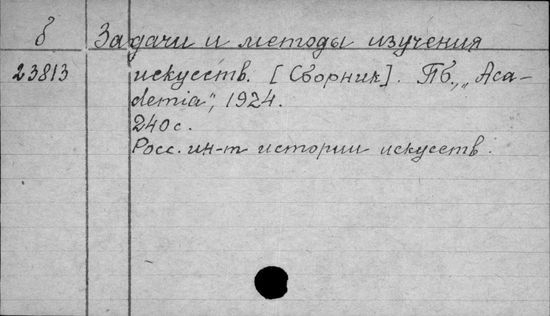 б Задачи и методы изучения
23813 искусств. [Сборник]. Пб., „Aca-
demia“, 1924.
240 с.
Росс. ин-т истории искусств.